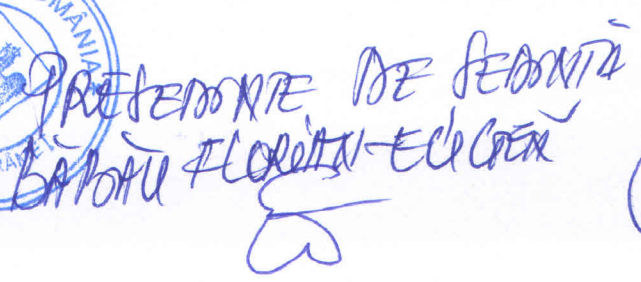 ROMÂNIA
PREȘEDINTE DE ȘEDINȚĂ
BĂBĂU FLORIAN-EUGEN